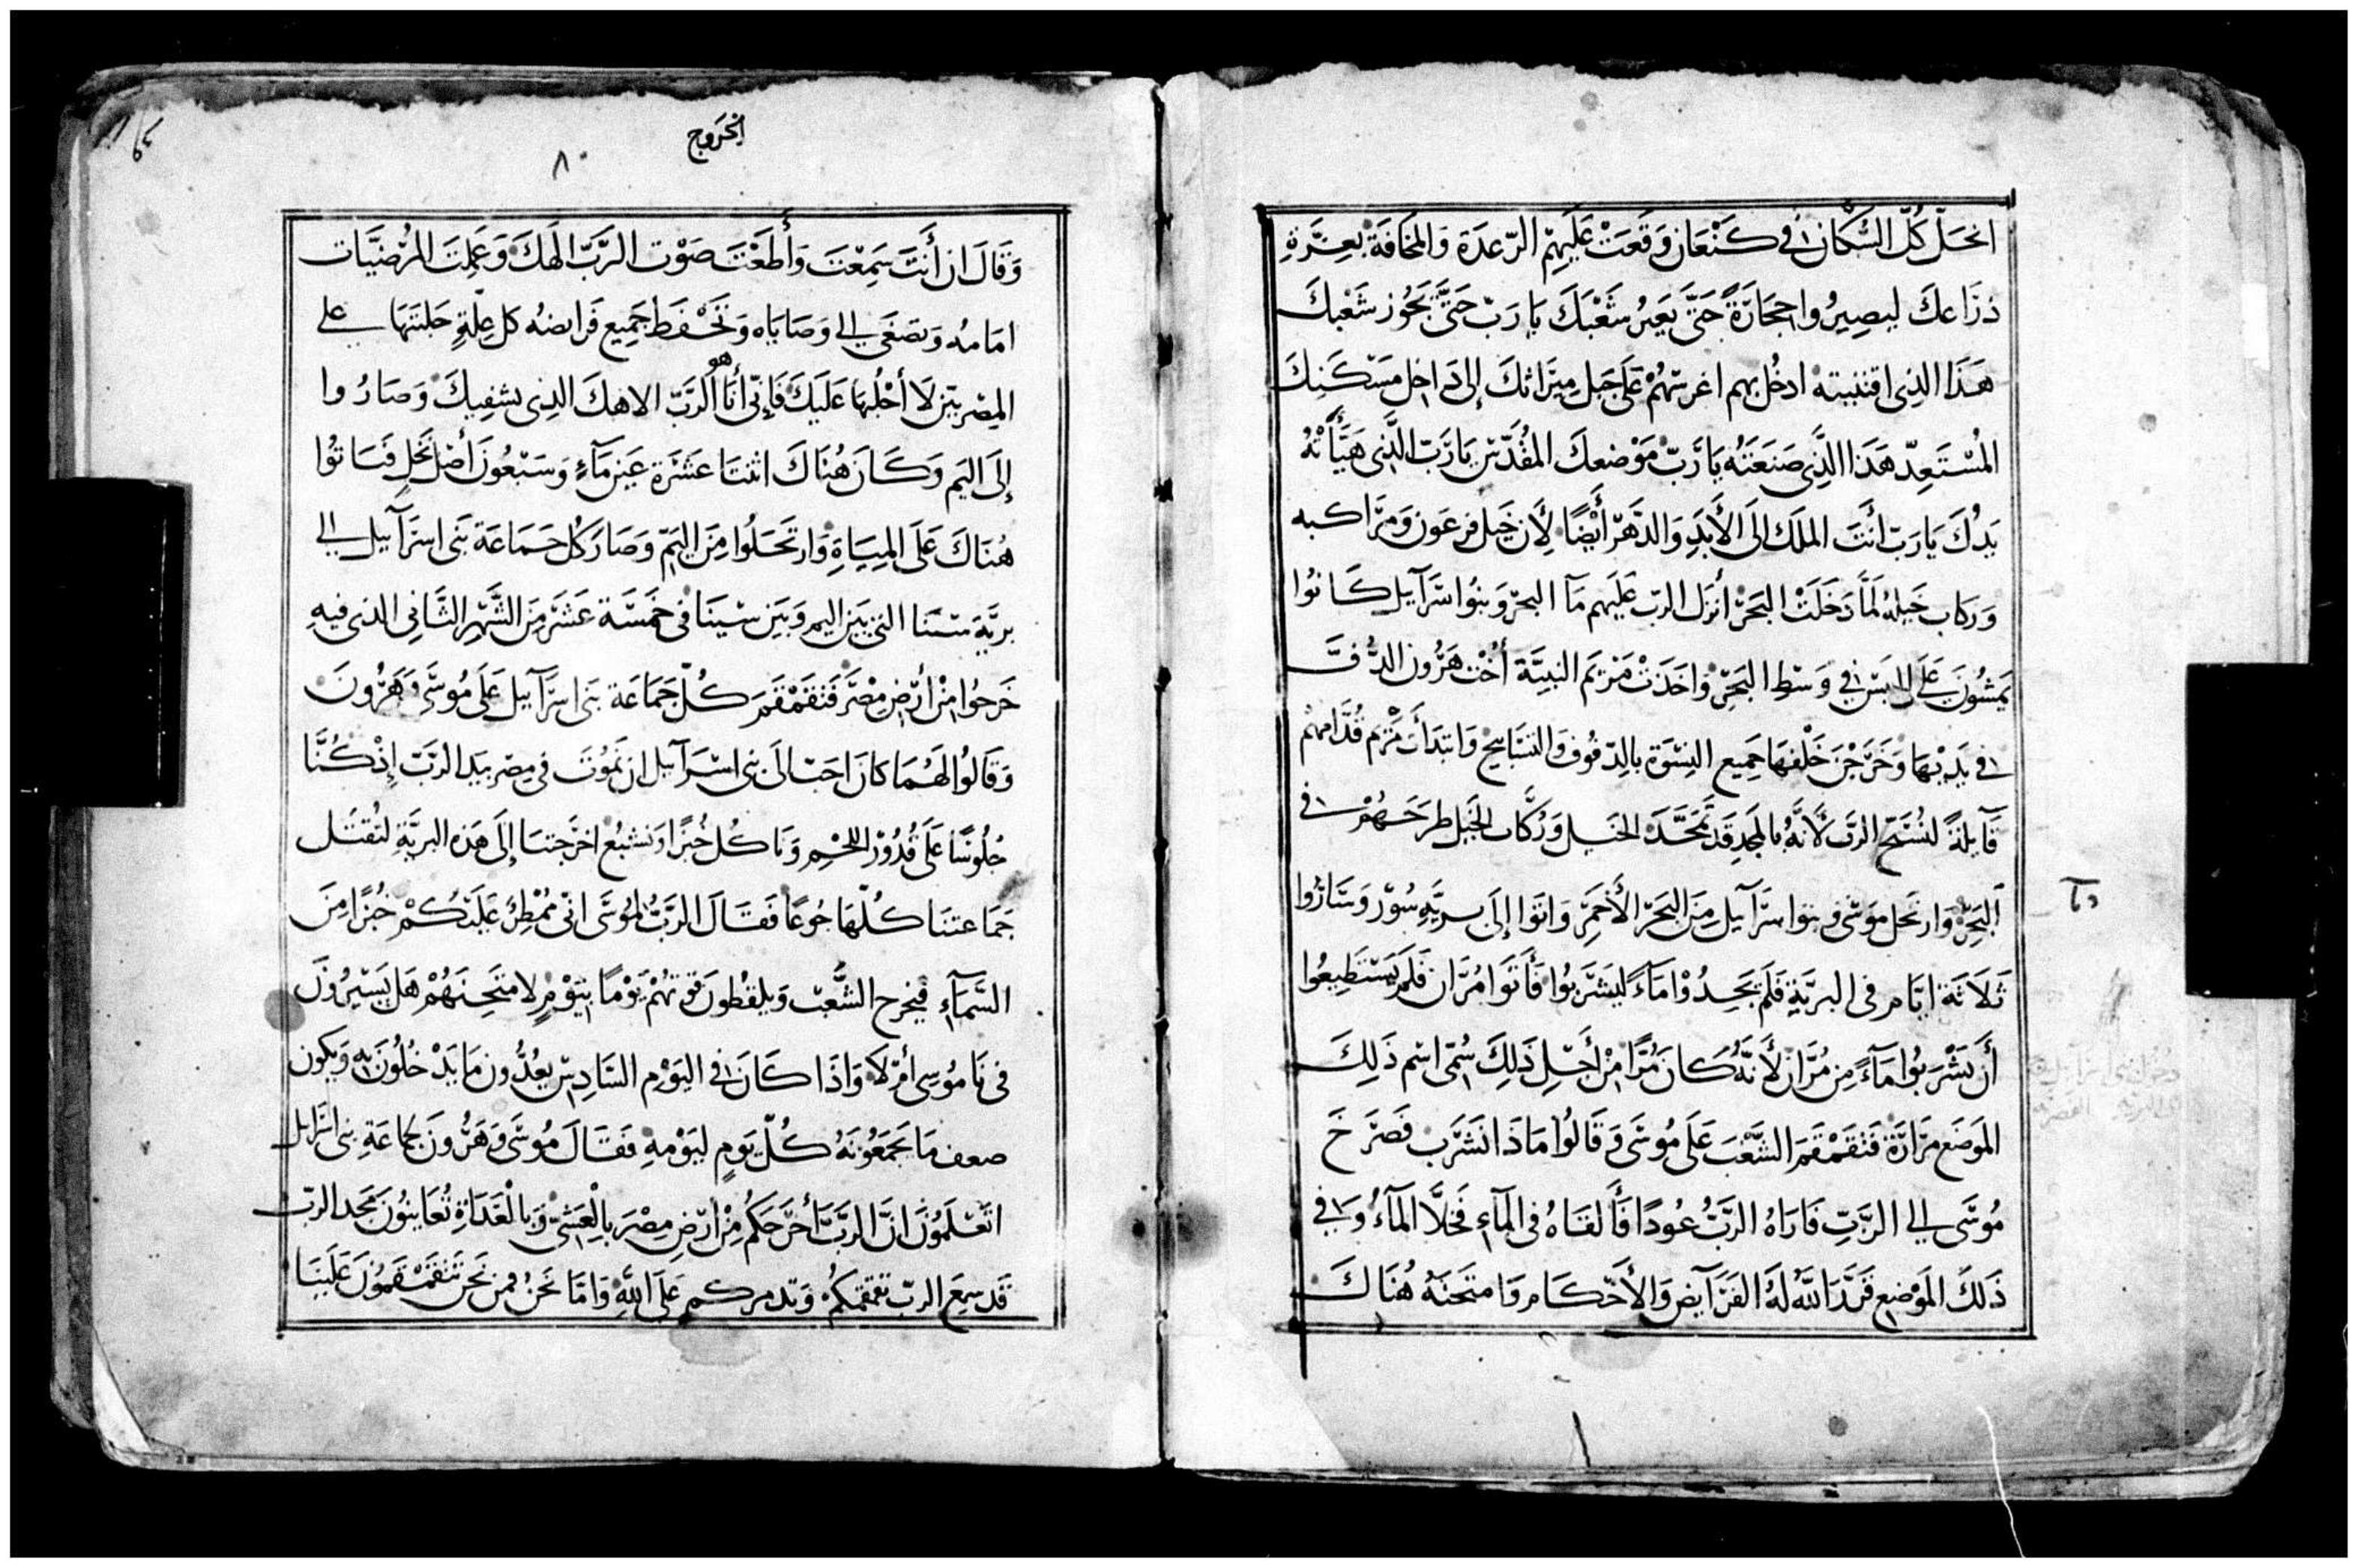 انحل كل السكان في كنعان وقعت عليهم الرعدة والمخافة بعزة
ذراعك ليصيروا حجارة حتى يعبر شعبك يا رب حتى يجوز شعبك
هذا الذي اقتنيته ادخل بهم اغرسهم على جبل ميراثك إلى داخل مسكنك
المستعد هذا الذي صنعته يا رب موضعك المقدس يا رب الذي هيأته
يدك يا رب أنت الملك الى الأبد والدهر أيضا لأن خيل فرعون ومراكبه
وركاب خيله لما دخلت البحر أنزل الرب عليهم مآ البحر وبنوا اسرآييل كانوا
يمشون على اليبس في وسط البحر واخذت مريم النبية أخت هرون الدف
في يديها وخرجن خلفها جميع النسوة بالدفوف والتسابيح وابتدأت مريم قدامهم
قآيلة لنسبح الرب لأنه بالمجد قد تمجد الخيل وركاب الخيل طرحهم في
البحر وارتحل موسى وبنوا اسرآييل من البحر الأحمر واتوا إلى برية سور وساروا
ثلاثة ايام في البرية فلم يجدوا مآء ليشربوا فأتوا مران فلم يستطيعوا
أن يشربوا مآء من مران لأنه كان مرا من أجل ذلك سمى اسم ذلك
الموضع مرارة فتقمقم الشعب على موسى وقالوا ماذا نشرب فصرخ
موسى الى الرب فاراه الرب عودا فألقاه في المآء فحلا المآء وفي
ذلك الموضع قرر الله له الفرآيض والأحكام وامتحنه هناك
الخروج
٨٠
وقال ان أنت سمعت وأطعت صوت الرب الهك وعملت المرضيات
امامه وتصغى الى وصاياه وتحفظ جميع فرايضه كل علة جلبتها على
المصريين لا أجلبها عليك فإنى أنا هو الرب الاهك الذى يشفيك وصاروا
إلى اليم وكان هناك اثنتا عشرة عين مآء وسبعون أصل نخل فباتوا
هناك على المياة وارتحلوا من اليم وصار كل جماعة بنى اسرآييل الى
برية سينا التى بين اليم وبين سينا في خمسة عشر من الشهر الثانى الذى فيه
خرجوا من أرض مصر فتقمقم كل جماعة بنى اسرآييل على موسى وهرون
وقالوا لهما كان احب الى بنى اسرآييل ان نموت في مصر بيد الرب إذ كنا
جلوسا على قدور اللحم وناكل خبزا ونشبع اخرجتنا إلى هذه البرية لتقتل
جماعتنا كلها جوعا فقال الرب لموسى انى ممطر عليكم خبزا من
السمآء فيخرج الشعب ويلقطون قوتهم يوما بيوم لامتحنهم هل يسيرون
في ناموسي أم لا واذا كان في اليوم السادس يعدون ما يدخلون به ويكون
ضعف ما يجمعونه كل يوم ليومه فقال موسى وهرون لجماعة بنى اسرايل
اتعلمون ان الرب أخرجكم من أرض مصر بالعشى وبالغداة تعاينون مجد الرب
قد سمع الرب تقمقمكم وتذمركم على الله واما نحن فمن نحن تتقمقمون علينا